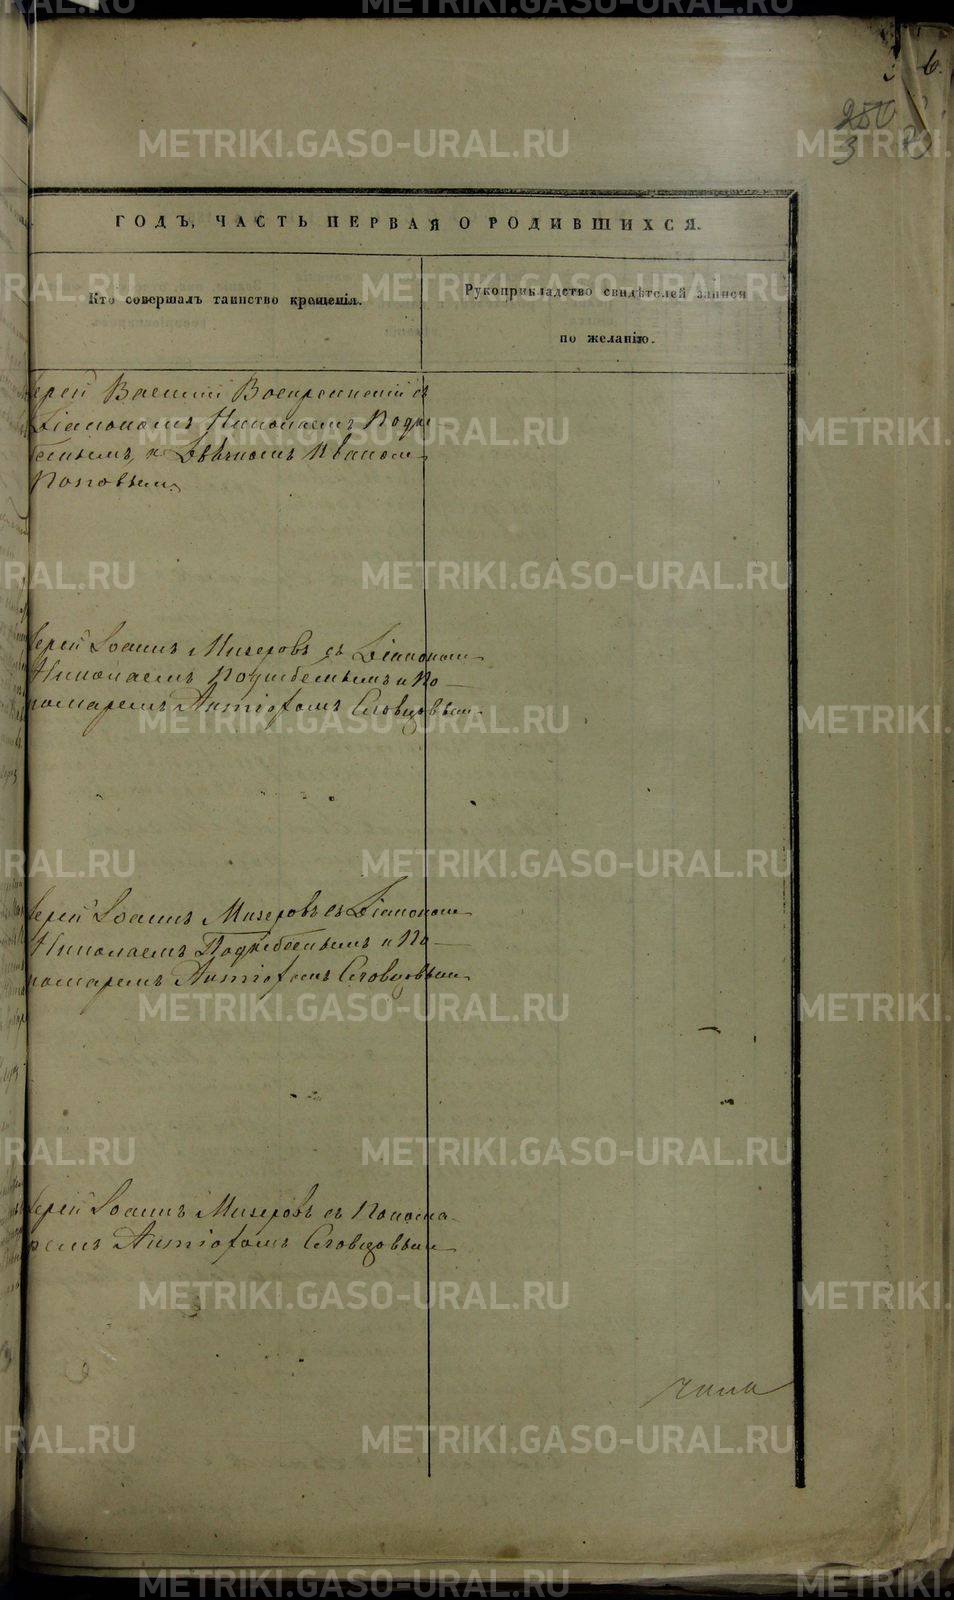 6.
280
3
ГОДЪ, ЧАСТЬ ПЕРВАЯ О РОДИВШИХСЯ.
Кто совершалъ таинство крещенія.
Рукоприкладство свидѣтелей записи
по желанію.
Іерей Василій Воскресенскій съ
Діакономъ Николаемъ
и Іваном
Поповымъ.
Іерей Іоаннъ Мизеровъ съ Діаконом
Николаемъ и По
номаремъ Антіофомъ Словцовым
Іерей Іоаннъ Мизеровъ съ Діаконом
Николаемъ и По
номаремъ Антіофомъ Словцовым
Іерей Іоаннъ Мизеровъ съ Понома
ремъ Антіофомъ Словцовым
METRIKI.GASO-URAL.RU